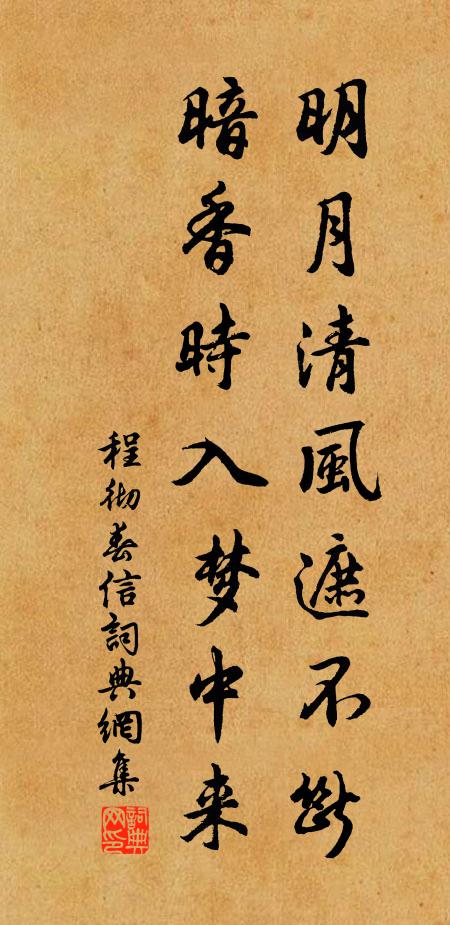 明月清風遮不斷
暗香時入梦中来
程彻春信詞典網集
詞典网印